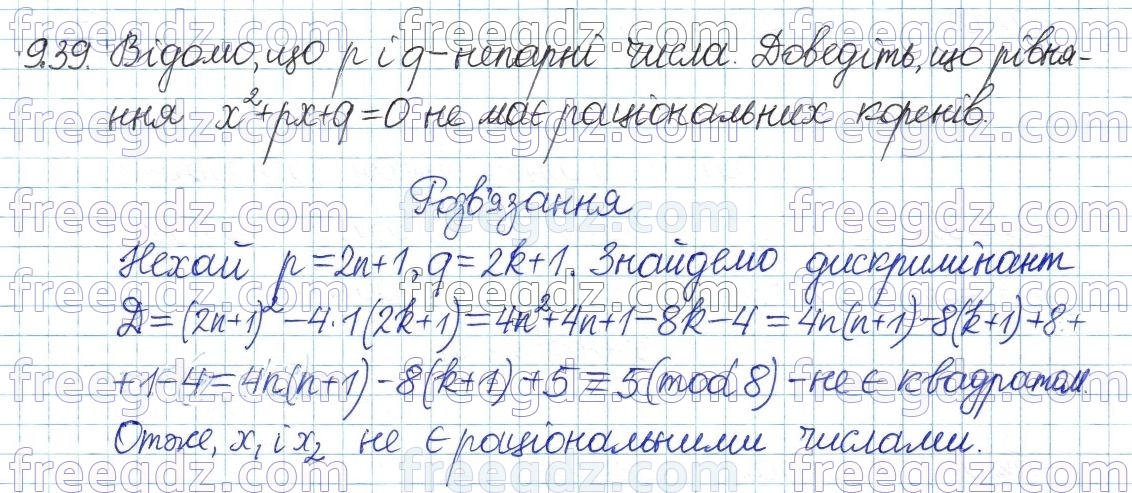 9.39. Відомо, що p і q – непарні числа. Доведіть, що рівня-
ння x²+px+q=0 не має раціональних коренів.
Розв'язання
Нехай p=2n+1, q=2k+1. Знайдемо дискримінант
D=(2n+1)²-4·1(2k+1)=4n²+4n+1-8k-4=4n(n+1)-8(k+1)+8+
+1-4=4n(n+1)-8(k+1)+5≡5(mod 8) - не є квадратом.
Отже, x₁ і x₂ не є раціональними числами.
freegdz.com